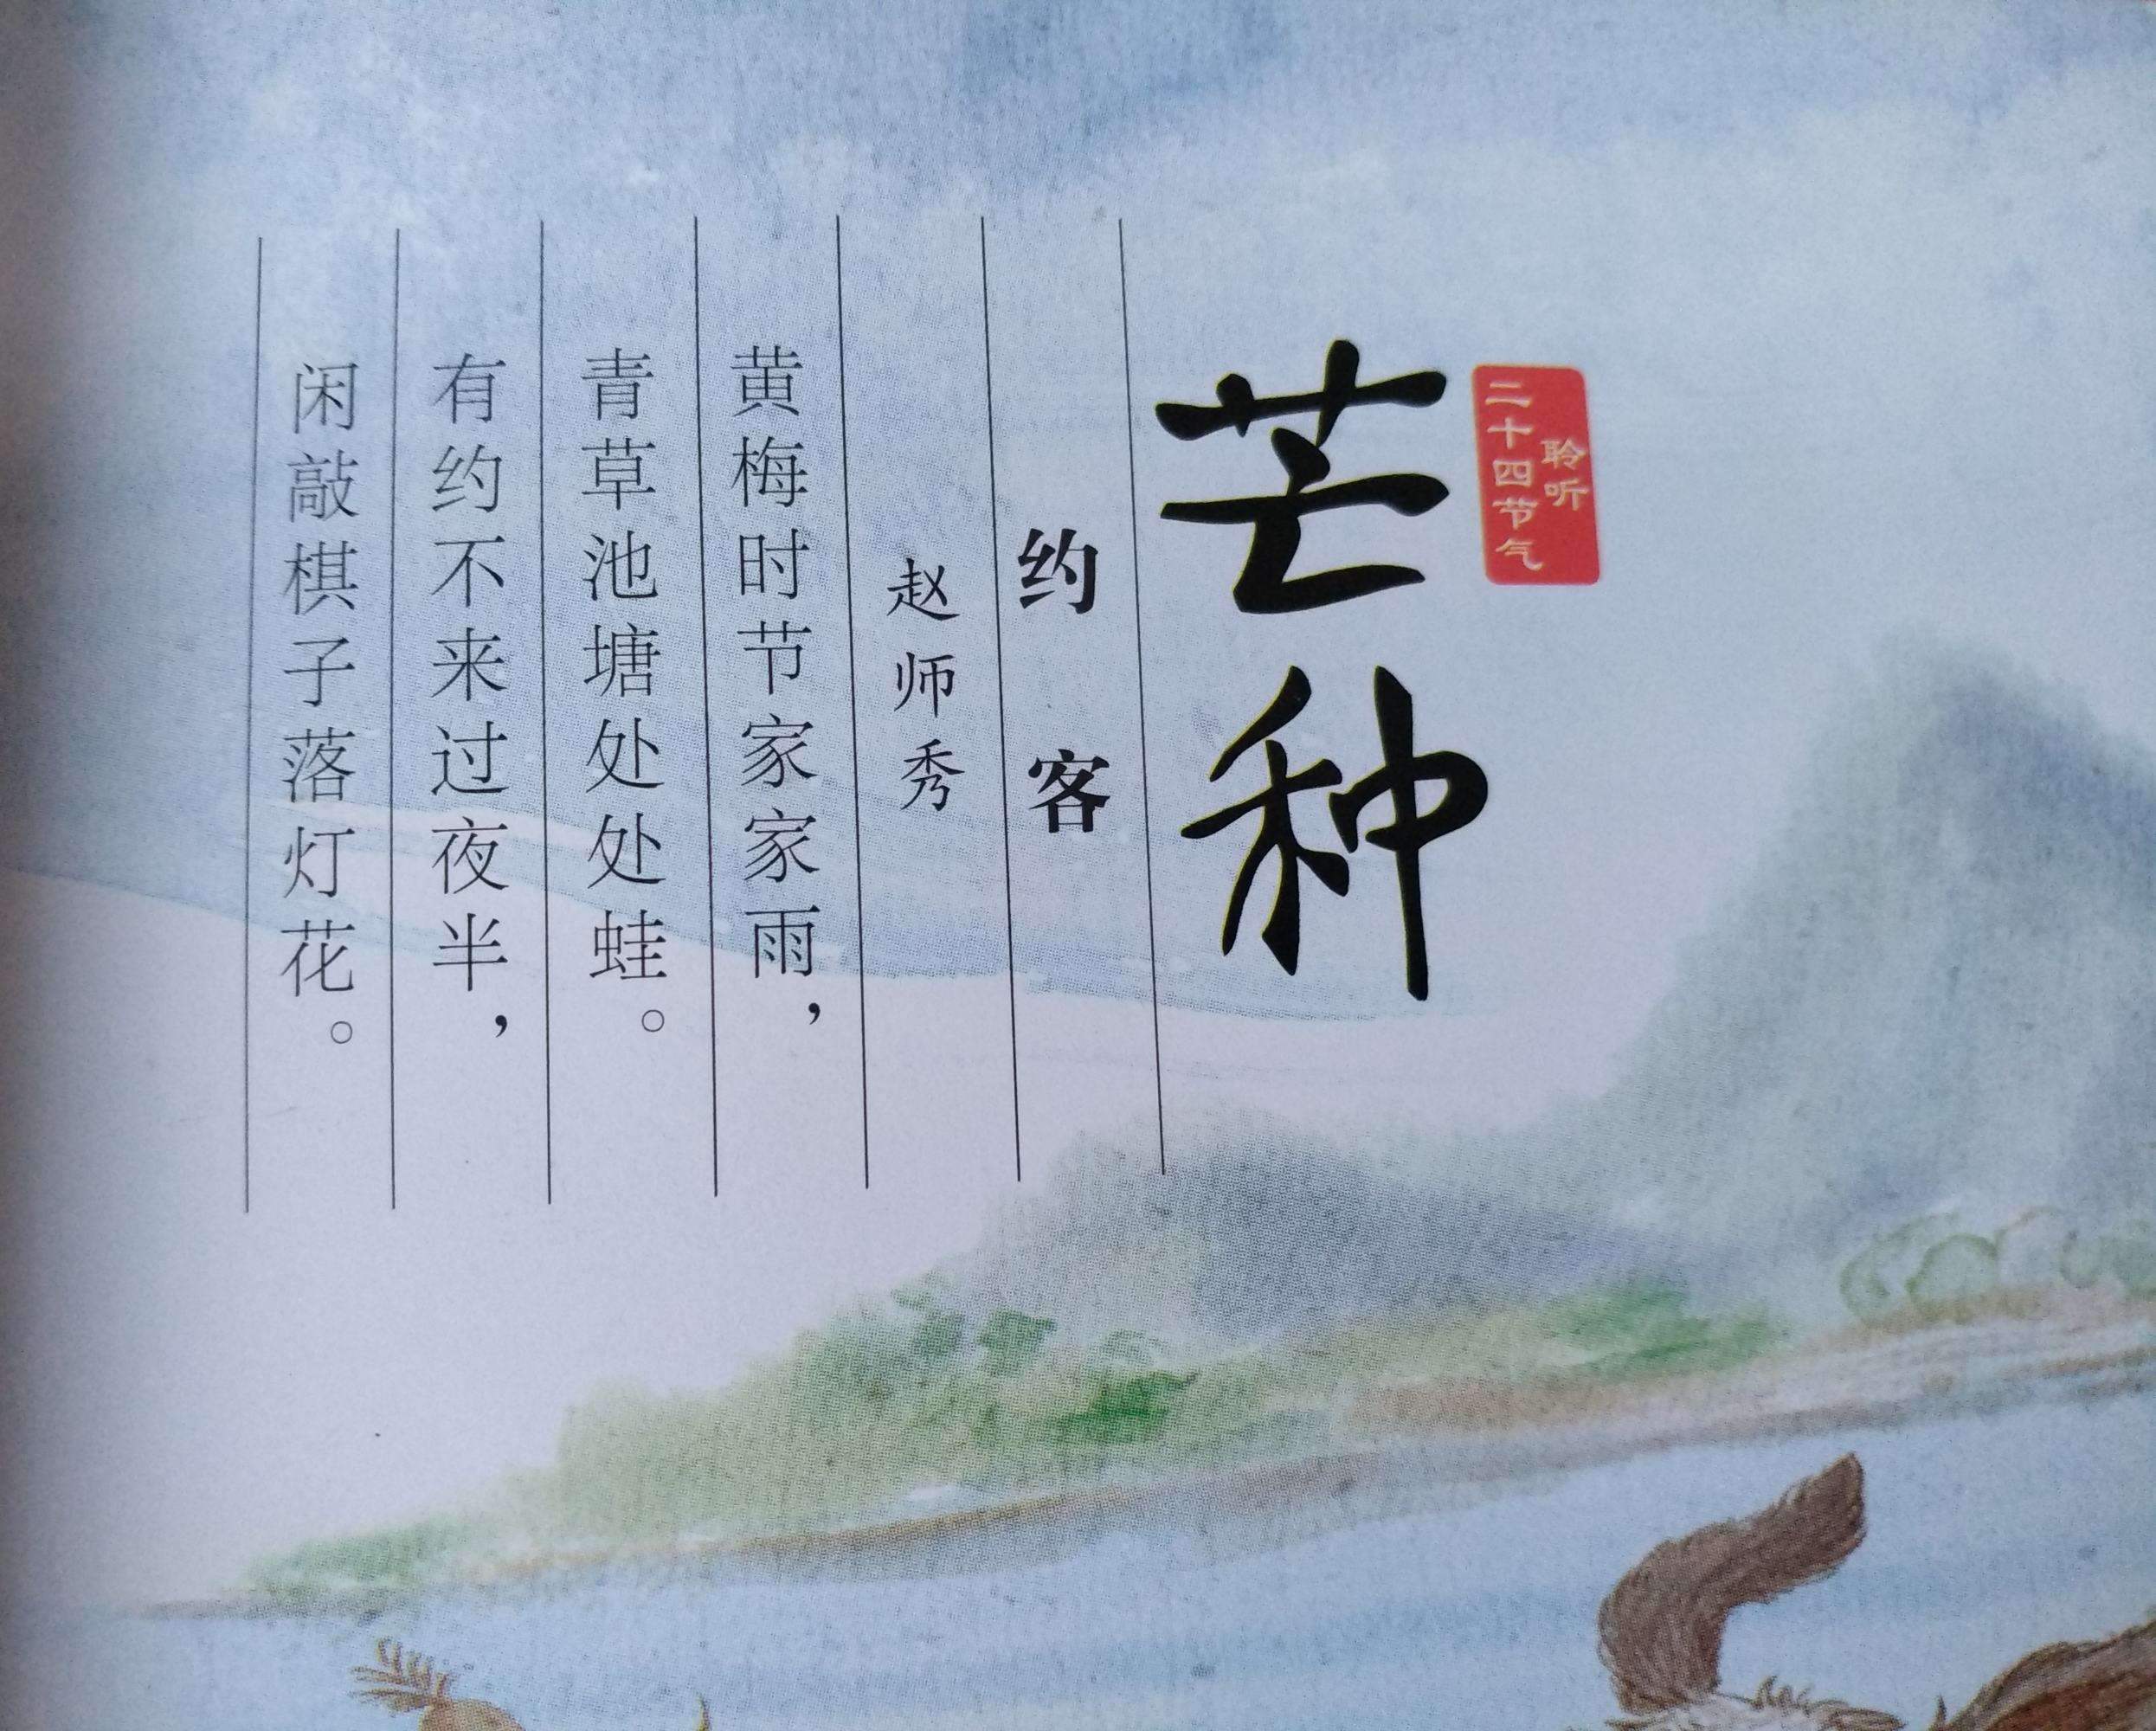 聆听
二十四节气
芒种
约客
赵师秀
黄梅时节家家雨，
青草池塘处处蛙。
有约不来过夜半，
闲敲棋子落灯花。